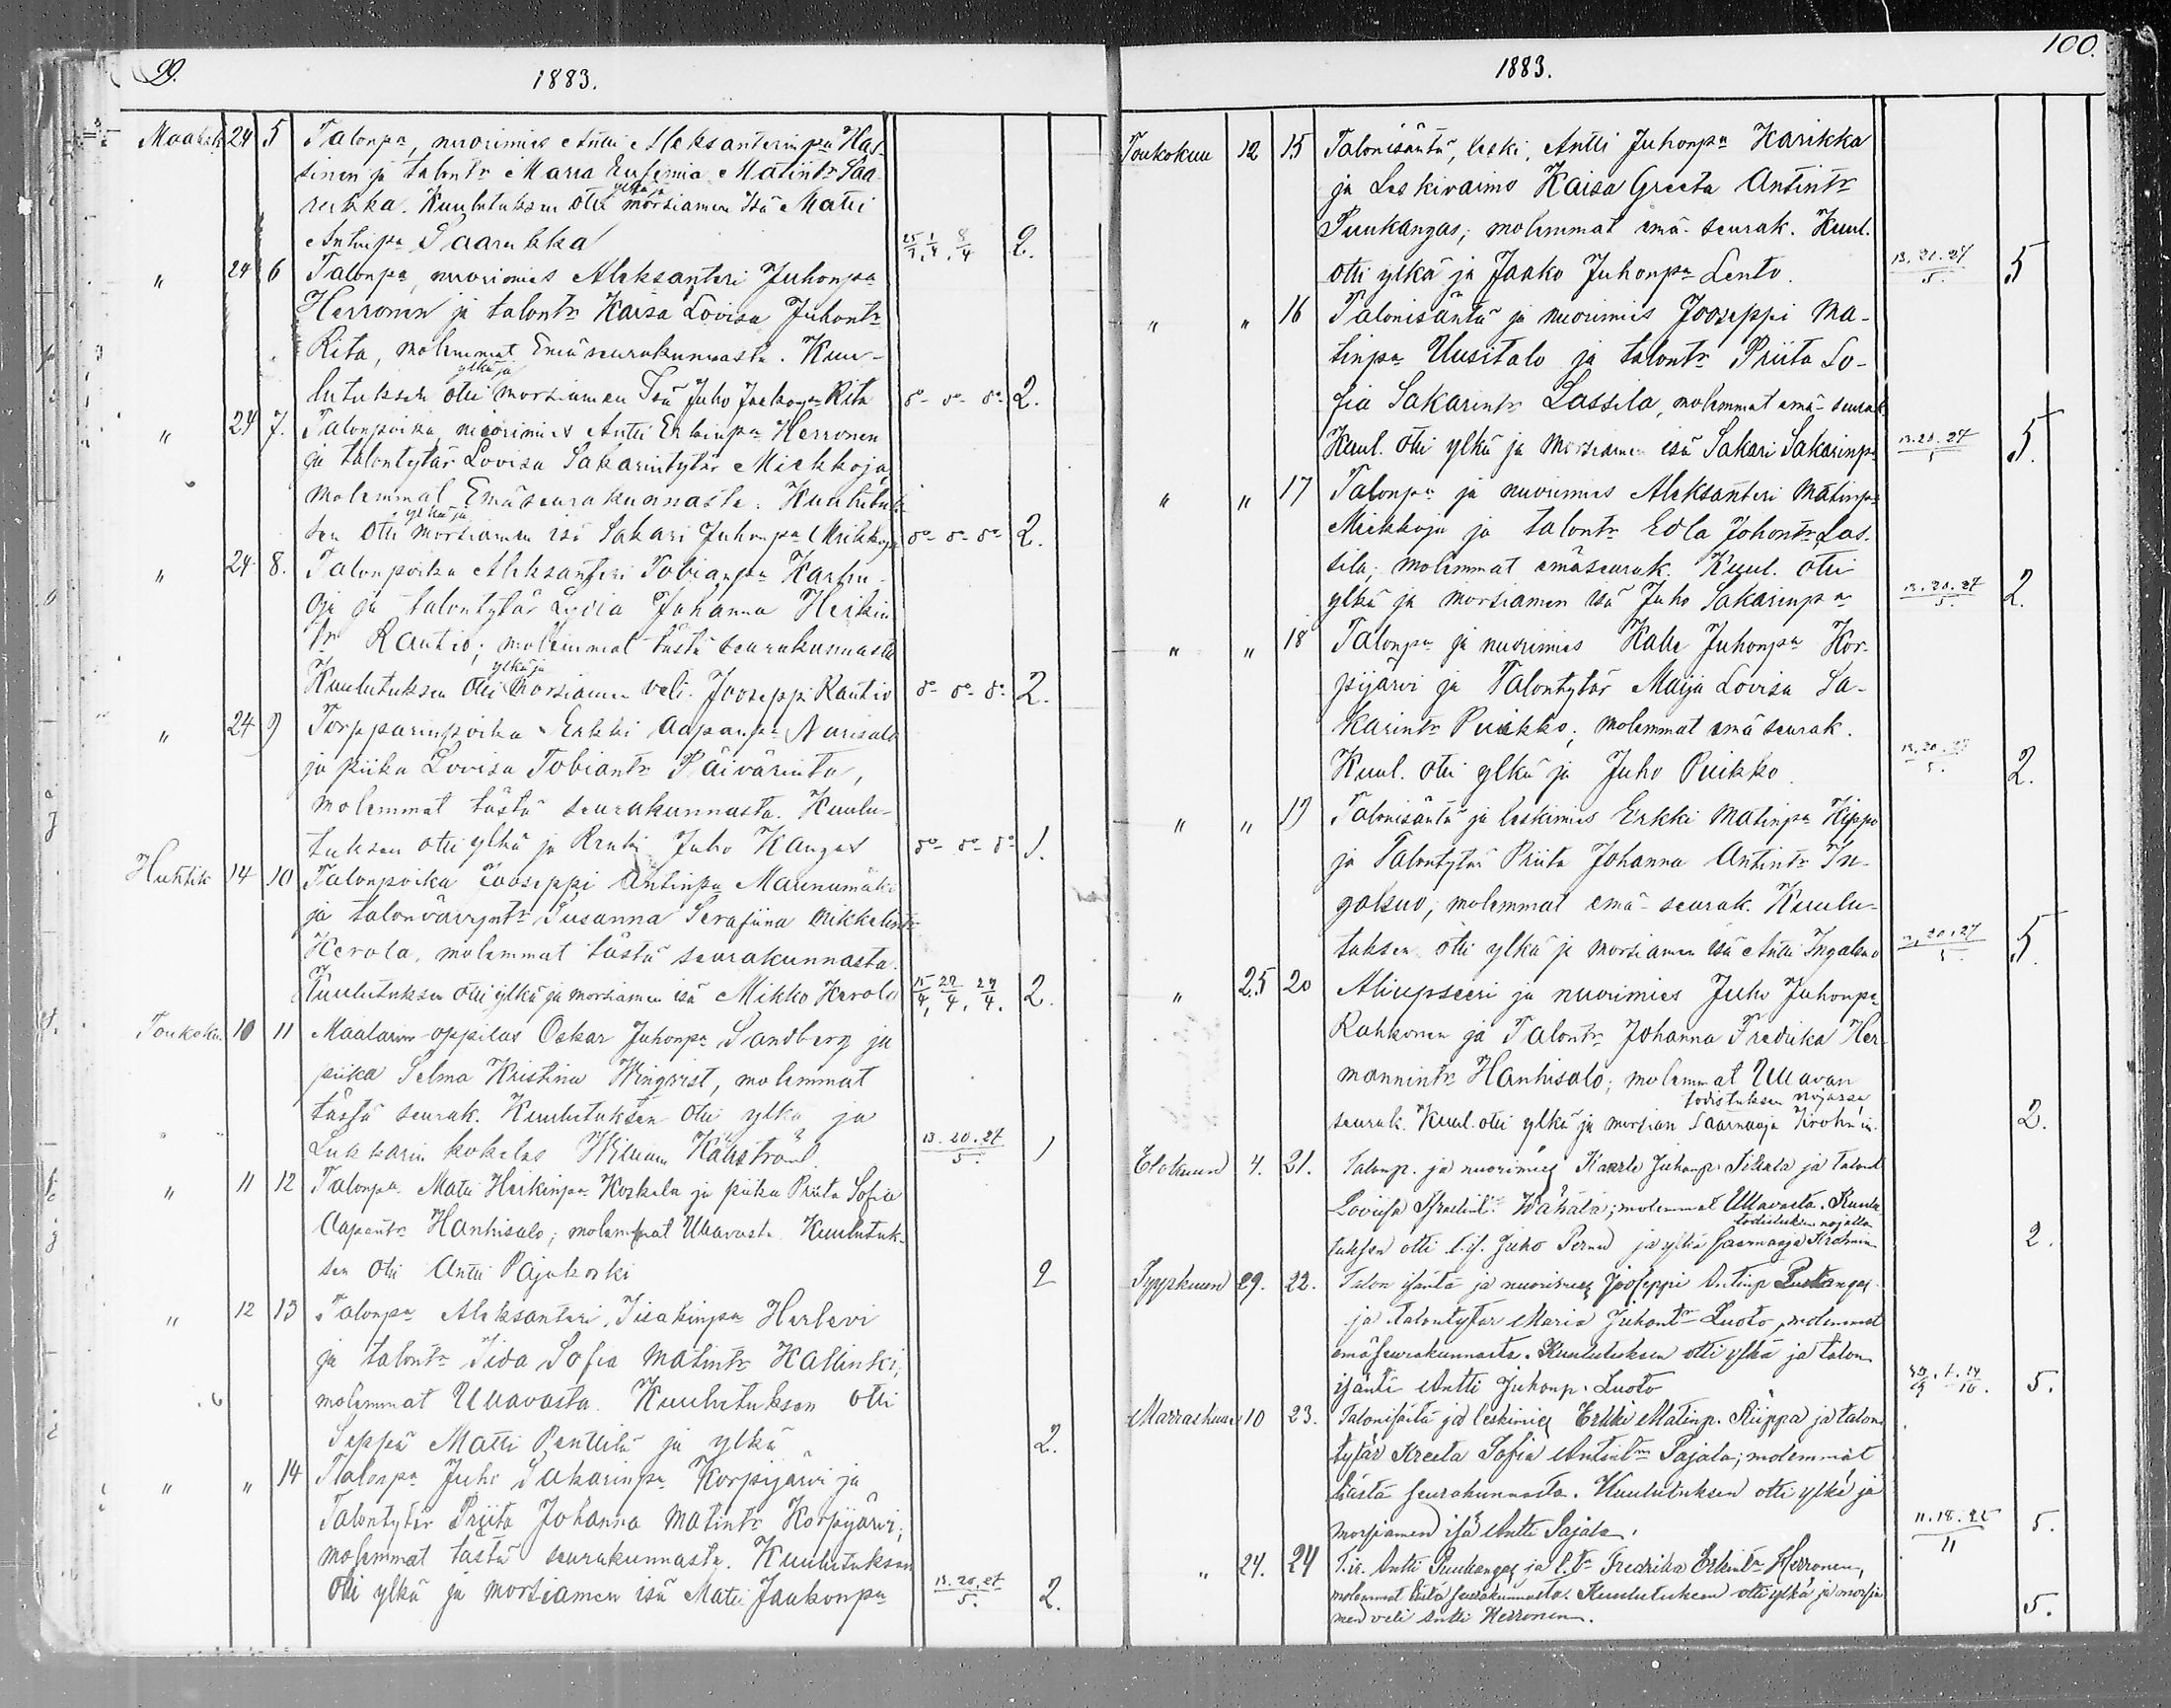 99.
1883.
Maalisk. 24 5 Talonpa, nuorimies Antti Aleksanterinpa Has-
sinen ja talontr Maria Eufemia Matintr Saa-
rukka. Kuulutuksen otti ylkä ja morsiamen Isä Matti
Antinpa Saarukka 25/3, 1/4, 8/4 2.
" 24 6 Talonpa, nuorimies Aleksanteri Juhonpa
Herronen ja talontr Kaisa Lovisa Juhontr
Rita, molemmat Emäseurakunnasta. Kuu-
lutuksen otti ylkä ja morsiamen Isä Juho Jaakonpa Rita do do do 2.
" 24 7. Talonpoika, nuorimies Antti Erkinpa Herronen
ja talontytär Lovisa Sakarintytär Miekkoja,
molemmat Emäseurakunnasta. Kuulutuk-
sen otti ylkä ja morsiamen isä Sakari Juhonpa Miekkoja do do do 2.
" 24 8. Talonpoika Aleksanteri Tobianpa Karhu-
oja ja talontytär Lydia Johanna Heikin
tr Rautio; molemmat tästä seurakunnasta
Kuulutuksen otti ylkä ja morsiamen veli Jooseppi Rautio do do do 2.
" 24 9 Torpparinpoika Erkki Aapanpa Narisalo
ja piika Lovisa Tobiantr Päivärinta,
molemmat tästä seurakunnasta. Kuulu-
tuksen otti ylkä ja Renki Juho Kangas do do do 1.
Huhtik 14 10 Talonpoika Jooseppi Antinpa Maunumäki
ja talonvävyntr Susanna Serafiina Mikkelintr
Kerola, molemmat tästä seurakunnasta.
Kuulutuksen otti ylkä ja morsiamen isä Mikko Kerola 15/4, 22/4, 29/4. 2.
Toukoku. 10 11 Maalarin oppilas Oskar Juhonpa Sandberg ja
piika Selma Kristina Wingvist, molemmat
tästä seurak. Kuulutuksen otti ylkä ja
Lukkarin kokelas Wilium 13.20.27/5. 1
" 11 12 Talonpa Matti Heikinpa Koskela ja piika Priita Sofia
Aapantr Hanhisalo; molemmat Ullavasta Kuulutuk-
sen otti Antti Pajukoski 2
" 12 13 Talonpa Aleksanteri Iisakinpa Herlevi
ja talontr Iida Sofia Matintr Kallinki,
molemmat Ullavasta. Kuulutuksen otti
Seppä Matti Penttilä ja ylkä 2.
" " 14 Talonpa Juho Sakarinpa Korpijärvi ja
Talontytär Priita Johanna Matintr Korpijärvi;
molemmat tästä seurakunnasta. Kuulutuksen
otti ylkä ja morsiamen isä Matti Jaakonpa 13.20.27/5. 2.
100.
1883.
Toukokuu 12 15 Talonisäntä, leski, Antti Juhonpa Karikka
ja Leskivaimo Kaisa Greeta Antintr
Puukangas, molemmat emä-seurak. Kuul.
otti ylkä ja Jaako Juhonpa Lento. 13.20.27/5. 5
" " 16 Talonisäntä ja nuorimies Jooseppi Ma-
tinpa Uusitalo ja talontr Priita So-
fia Sakarintr Lassila, molemmat emä-seurak
Kuul. otti ylkä ja morsiamen isä Sakari Sakarinpa 13.20.27/5 5.
" " 17 Talonpa ja nuorimies Aleksanteri Matinpa
Miekkoja ja talontr Edla Johontr Las-
sila; molemmat emäseurak. Kuul. otti
ylkä ja morsiamen isä Juho Sakarinpa 13.20.27/5. 2.
" " 18 Talonpa ja nuorimies Kalle Juhonpa Kor-
pijärvi ja Talontytär Maija Lovisa Sa-
karintr Puikko; molemmat emä seurak.
Kuul. otti ylkä ja Juho Puikko. 13.20.27/5. 2.
" " 19 Talonisäntä ja leskimies Erkki Matinpa Kippo
ja Talontytär Priita Johanna Antintr In-
galsuo, molemmat emä-seurak. Kuulu-
tuksen otti ylkä ja morsiamen isä Antti Ingalsuo 13.20.27/5. 5.
" 25 20 Aliupseeri ja nuorimies Juho Juhonpa
Rahkonen ja Talontr Johanna Fredrika Her-
mannintr Hanhisalo; molemmat Ullavan
seurak. Kuul. otti ylkä ja morsian Saarnaaja Krohnin todistuksen nojassa 2.
Elokuun 4. 21. Talonp. ja nuorimies Kaarle Juhonp. Tikala ja talont
Loviisa Wähälä; molemmat Ullavasta. Kuulu-
tuksen otti t.is. Juho Pernu ja ylkä saarnaaja Krohnin todistuksen nojalla 2.
Syyskuun 29. 22. Talon isäntä ja nuorimies Jooseppi Antinp Puukangas
ja talontytär Maria Juhontr Luoto, molemmat
emäseurakunnasta. Kuulutuksen otti ylkä ja talon
isäntä Antti Juhonp. Luoto 5.
Marraskuun 10 23. Talonisäntä ja leskimies Erkki Matinp. Kiippa ja talon
tytär Kreeta Sofia Antintr Pajala; molemmat
tästä seurakunnasta. Kuulutuksen otti ylkä ja
morsiamen isä Antti Pajala. 11.18.25/11 5.
" 24. 24 T.is. Antti Puukangas ja t.tr Fredrika Erkintr Herronen,
molemmat tästä seurakunnasta. Kuulutuksen otti ylkä ja morsia
men veli Antti Herronen. 5.